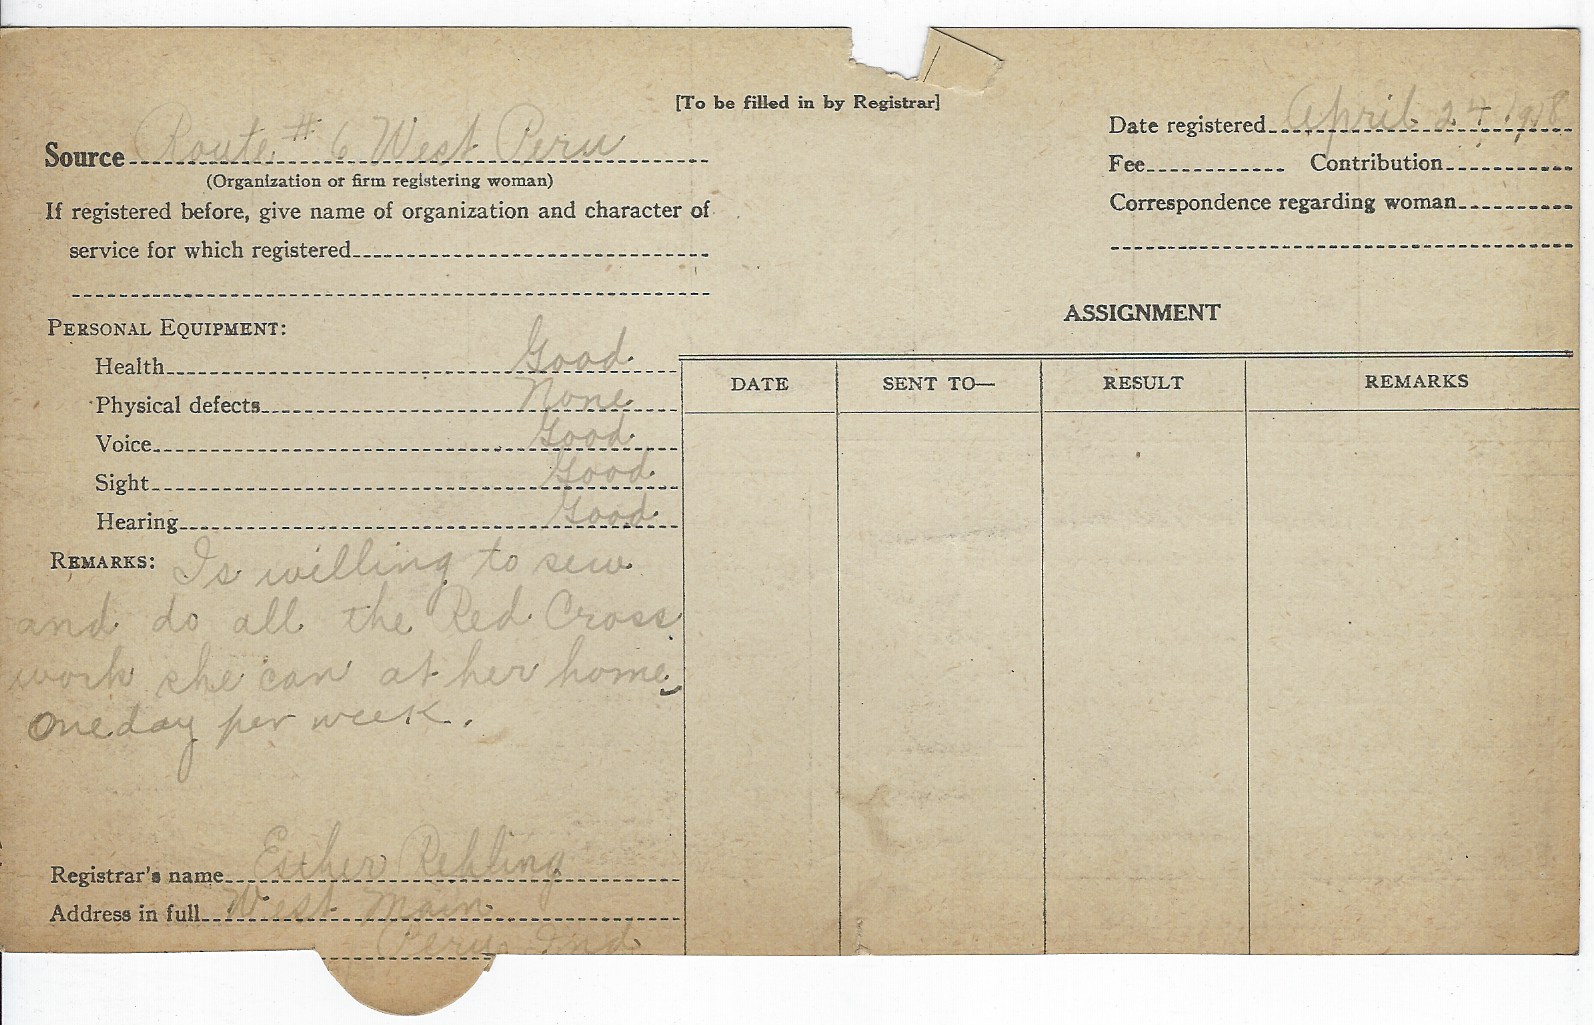 [To be filled in by Registrar]
Source Route # 6 West Peru
(Organization or firm registering woman)
If registered before, give name of organization and character of
service for which registered
Date registered April 24, 1918
Fee Contribution
Correspondence regarding woman
PERSONAL EQUIPMENT:
Health Good
Physical defects None
Voice Good
Sight Good
Hearing Good
REMARKS: Is willing to sew
and do all the Red Cross
work she can at her home
one day per week.
Registrar's name Esther Rehling
Address in full West Main
Peru, Ind
ASSIGNMENT
DATE SENT TO— RESULT REMARKS